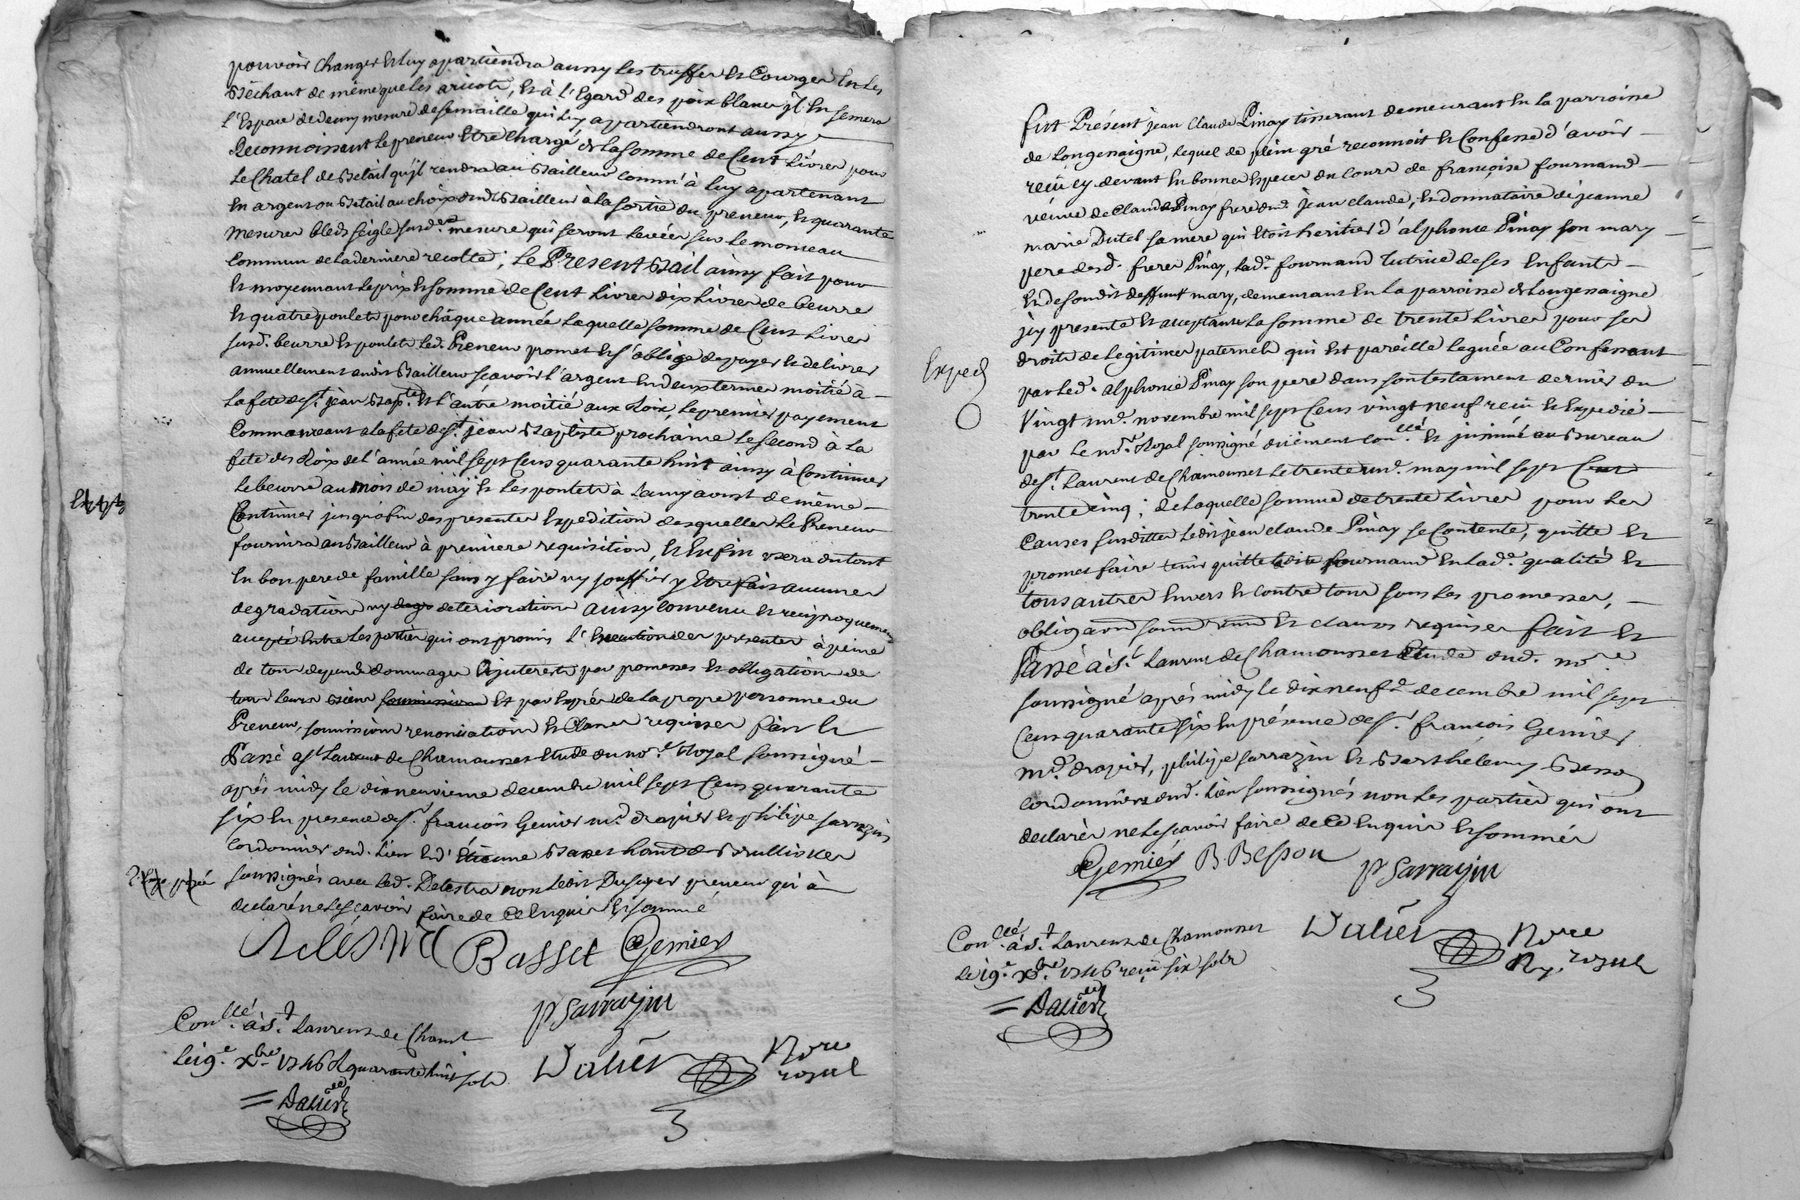 pouvoir changer et luy apartiendra aussy les truffes et Courges en les
séchant de même que les aricots, et à l'Egard des poix blancs jl En semera
l'Espace de demy mesure de semaille qui luy apartiendront aussy
Reconnoissant le preneur Etre chargé de la somme de Cent Livres pour
Le Chatel de Bétail qu'il rendra au Bailleur comm'à luy apartenant
en argent ou Bétail au choix dud. Bailleur à la sortie du preneur, et quarante
mesures bled seigle susd. mesure qui seront levées sur le monceau
commun de la derniere recolte, Le Present Bail ainsy fait pour
et moyennant le prix et somme de Cent Livres dix Livres de beurre
et quatre poulets pour châque année laquelle somme de Cent Livres
susd. beurre et poulets led. Preneur promet et s'oblige de payer et delivrer
annuellement audit Bailleur scavoir l'argent en deux termes moitié à
la fete de st. jean Bapte. et l'autre moitié aux Roix, le premier payement
Commancant a la fete de st. jean Baptiste prochaine le second à la
fete des Roix de l'année mil sept Cens quarante huit ainsy à Continuer
Le beurre au mois de may et les poulets à la my aoust de même
Continuer jusqu'a fin des presentes Expedition desquelles le Preneur
fournira au Bailleur à premiere requisition, et Enfin usera du tout
En bon pere de famille sans y faire ny souffrir y Etre fait aucunes
degradation ny deterioration ainsy convenu et reciproquement
accepté Entre Les parties qui ont promis l'Execution des presentes à peine
de tous depends dommages Et jnterets par promesses et obligation de
tous leurs biens et par Exprés de la propre personne du
Preneur, soumission renonciation et Clauses requises fait et
Passé a st. Laurent de Chamousset Etude du no.re Royal soussigné
aprés midy le dixneuvieme decembre mil sept Cens quarante
six En presence de sr. francois Genier md. drapier et philipe sarrazin
cordonnier dud. Lieu Et d'Etienne Basset
soussignés avec led. Delestra non ledit preneur qui à
declaré ne le scavoir faire de Ce Enquis Et sommé
Basset Genier
P Sarrazin
Con.llé à st. Laurens de Cham.t
le 19.e xbre 1746 R quarante huit sols
Dalier
Dalier No.re royal
Exped
fut Présent jean Claude Pinay tisserant demeurant En la parroisse
de Longessaigne, lequel de plein gré reconnoit et Confesse d'avoir
reçû cy devant En bonnes Especes du cours de francoise fournand
veuve de Claude Pinay frere dud. jean claude, et donnataire de jeanne
marie Dutel sa mere qui Etoit heritiere d'alphonse Pinay son mary
pere desd. freres Pinay, lad. fournand tutrice de ses Enfants
et de sondit deffunt mary, demeurant En la parroisse de Longessaigne
jcy presente et acceptante la somme de trente Livres pour ses
droits de Legitime paternels qui Est pareille leguée au Confessant
par led. alphonse Pinay son pere dans son testament dernier du
Vingt novembre mil sept Cens vingt neuf reçû et Expedié
par le no.re Royal soussigné duement con.llé et jnsinué au Bureau
de st. Laurens de Chamousset le trente un.e may mil sept Cent
trente cinq ; de laquelle somme de trente Livres pour les
Causes susdittes ledit jean claude Pinay se Contente, quitte et
promet faire tenir quitte ladite fournand En lad. qualité et
tous autres Envers et contre tous sous les promesses,
obliga.on et clauses requises fait et
Passé à st. Laurens de Chamousset Etude dud. no.re
soussigné aprés midy le dixneuf.e decembre mil sept
Cens quarante six En présence de sr. francois Genier
md. drapier, philipe sarrazin et Barthélemy Besson
cordonniers dud. Lieu soussignés non Les parties qui ont
declarés ne le sçavoir faire de Ce Enquis et sommés
Genier B. Besson
P Sarrazin
Dalier No.re Ry. royal
Con.llé à st. Laurens de Chamousset
le 19.e xbre 1746 reçû six sols
Dalier